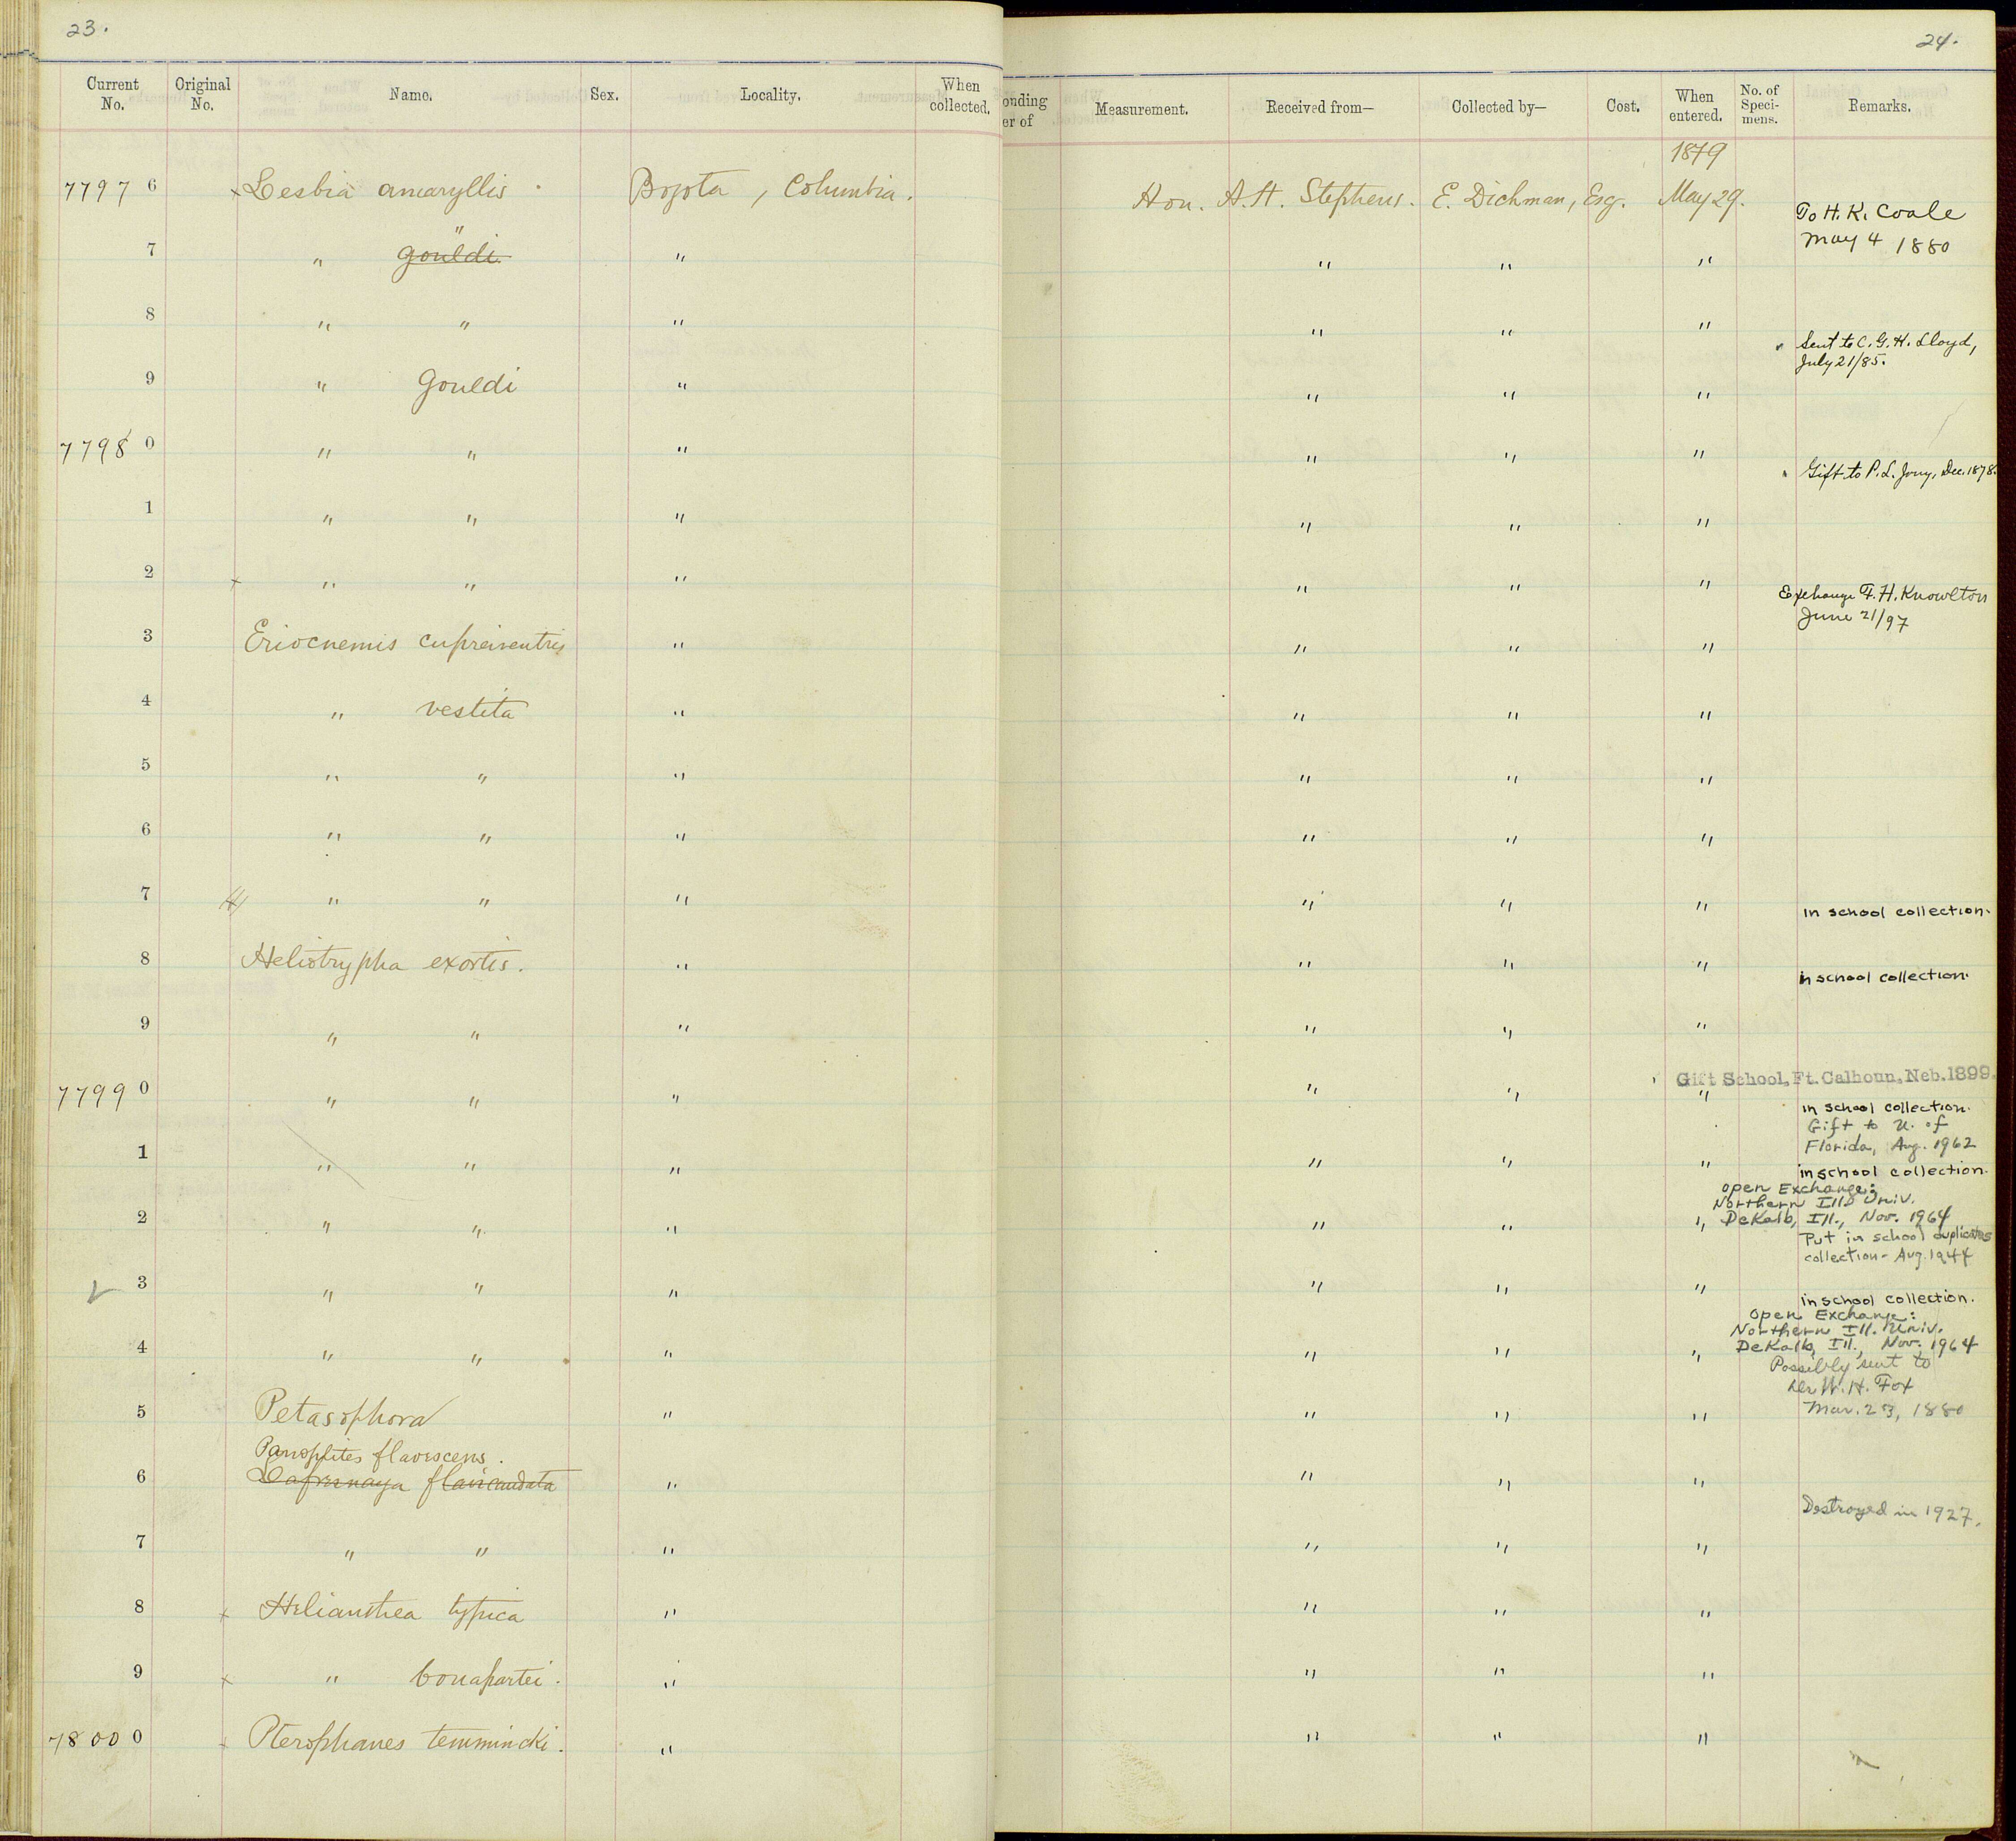 23.
24.
Current No. Original No. Name. Sex. Locality. When collected. onding er of Measurement. Received from— Collected by— Cost. When entered. No. of Speci-mens. Remarks.
1879
7797 6 × Lesbia amaryllis. Bogota, Columbia. Hon. A. H. Stephens. E. Dichman, Esq. May 29.
To H. K. Coale
May 4 1880
7 " gouldi " " " " "
8 " " " " " "
Sent to C. G. H. Lloyd,
July 21/85.
9 " Gouldi " " " "
7798 0 " " " " " "
Gift to P. L. Jouy, Dec. 1878.
1 " " " " " "
2 × " " " " " "
Exchange F. H. Knowlton
June 21/97
3 Eriocnemis cupreiventris " " " "
4 " vestita " " " "
5 " " " " " "
6 " " " " " "
7 " " " " " "
in school collection.
8 Heliotrypha exortis. " " " "
in school collection.
9 " " " " " "
Gift School, Ft. Calhoun, Neb. 1899.
7799 0 " " " " " "
in school collection.
Gift to U. of
Florida, Aug. 1962
1 " " " " " "
in school collection.
Open Exchange:
Northern Ill. Univ.
2 " " " " " " DeKalb, Ill., Nov. 1964
Put in school duplicates
collection - Aug. 1944
3 " " " " " "
in school collection.
Open Exchange:
Northern Ill. Univ.
DeKalb, Ill., Nov. 1964
4 " " " " " "
Possibly sent to
Dr. W. H. Fox
Mar. 23, 1880
5 Petasophora " " " "
Panoplites flavescens.
6 Lafresnaya flavicaudata " " " "
Destroyed in 1927.
7 " " " " " "
8 × Helianthea typica " " " "
9 × " bonapartei. " " " "
7800 0 × Pterophanes temmincki. " " " "